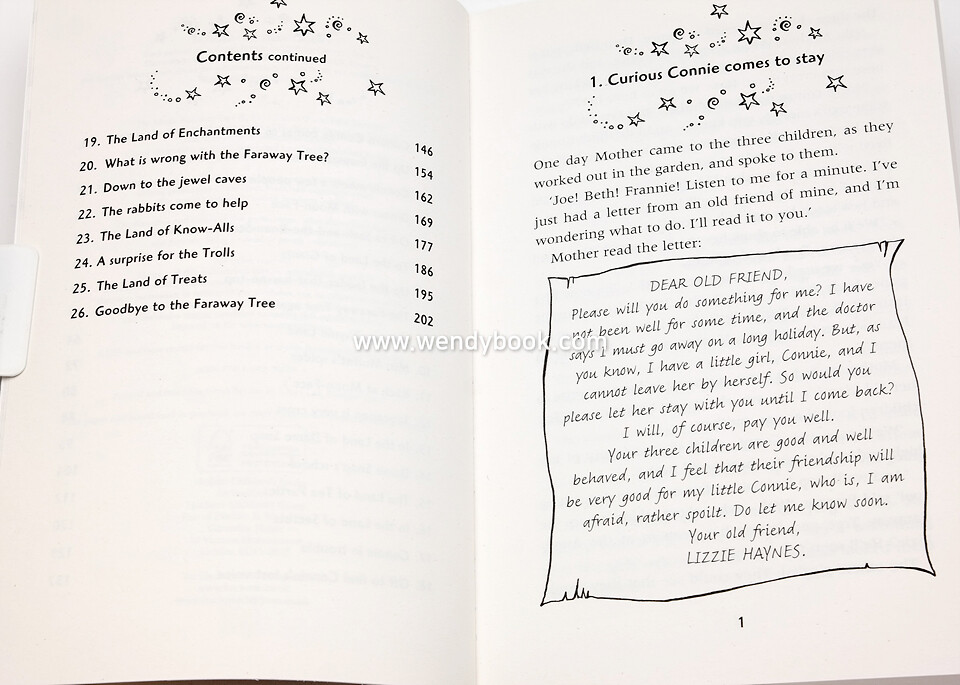 Contents continued
19. The Land of Enchantments 146
20. What is wrong with the Faraway Tree? 154
21. Down to the jewel caves 162
22. The rabbits come to help 169
23. The Land of Know-Alls 177
24. A surprise for the Trolls 186
25. The Land of Treats 195
26. Goodbye to the Faraway Tree 202
1. Curious Connie comes to stay
One day Mother came to the three children, as they
worked out in the garden, and spoke to them.
'Joe! Beth! Frannie! Listen to me for a minute. I've
just had a letter from an old friend of mine, and I'm
wondering what to do. I'll read it to you.'
Mother read the letter:
DEAR OLD FRIEND,
Please will you do something for me? I have
not been well for some time, and the doctor
says I must go away on a long holiday. But, as
you know, I have a little girl, Connie, and I
cannot leave her by herself. So would you
please let her stay with you until I come back?
I will, of course, pay you well.
Your three children are good and well
behaved, and I feel that their friendship will
be very good for my little Connie, who is, I am
afraid, rather spoilt. Do let me know soon.
Your old friend,
LIZZIE HAYNES.
1
www.wendybook.com